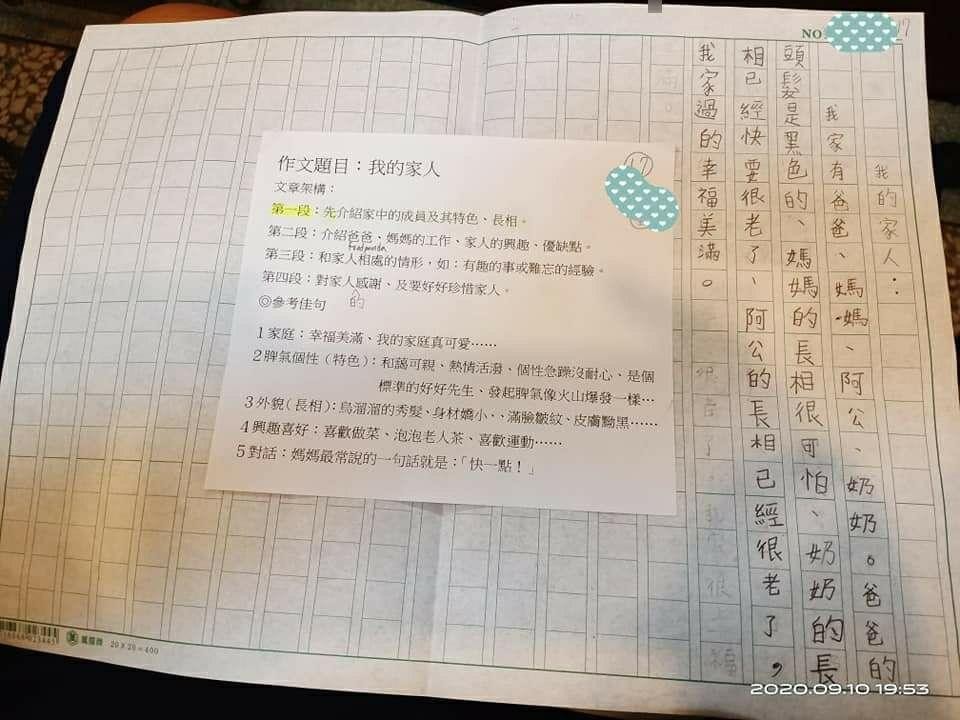 NO
17
我的家人：
我家有爸爸、媽媽、阿公、奶奶。爸爸的
頭髮是黑色的、媽媽的長相很可怕、奶奶的長
相已經快要很老了、阿公的長相已經很老了，
我家過的幸福美滿。
17
作文題目：我的家人
文章架構：
第一段：先介紹家中的成員及其特色、長相。
第二段：介紹爸爸、媽媽的工作、家人的興趣、優缺點。
第三段：和家人相處的情形，如：有趣的事或難忘的經驗。
第四段：對家人感謝、及要好好珍惜家人。
的
◎參考佳句
1家庭：幸福美滿、我的家庭真可愛……
2脾氣個性（特色）：和藹可親、熱情活潑、個性急躁沒耐心、是個
標準的好好先生、發起脾氣像火山爆發一樣…
3外貌（長相）：烏溜溜的秀髮、身材嬌小‧‧滿臉皺紋、皮膚黝黑……
4興趣喜好：喜歡做菜、泡泡老人茶、喜歡運動……
5對話：媽媽最常說的一句話就是：「快一點！」
20 X 20 = 400
2020.09.10 19:53